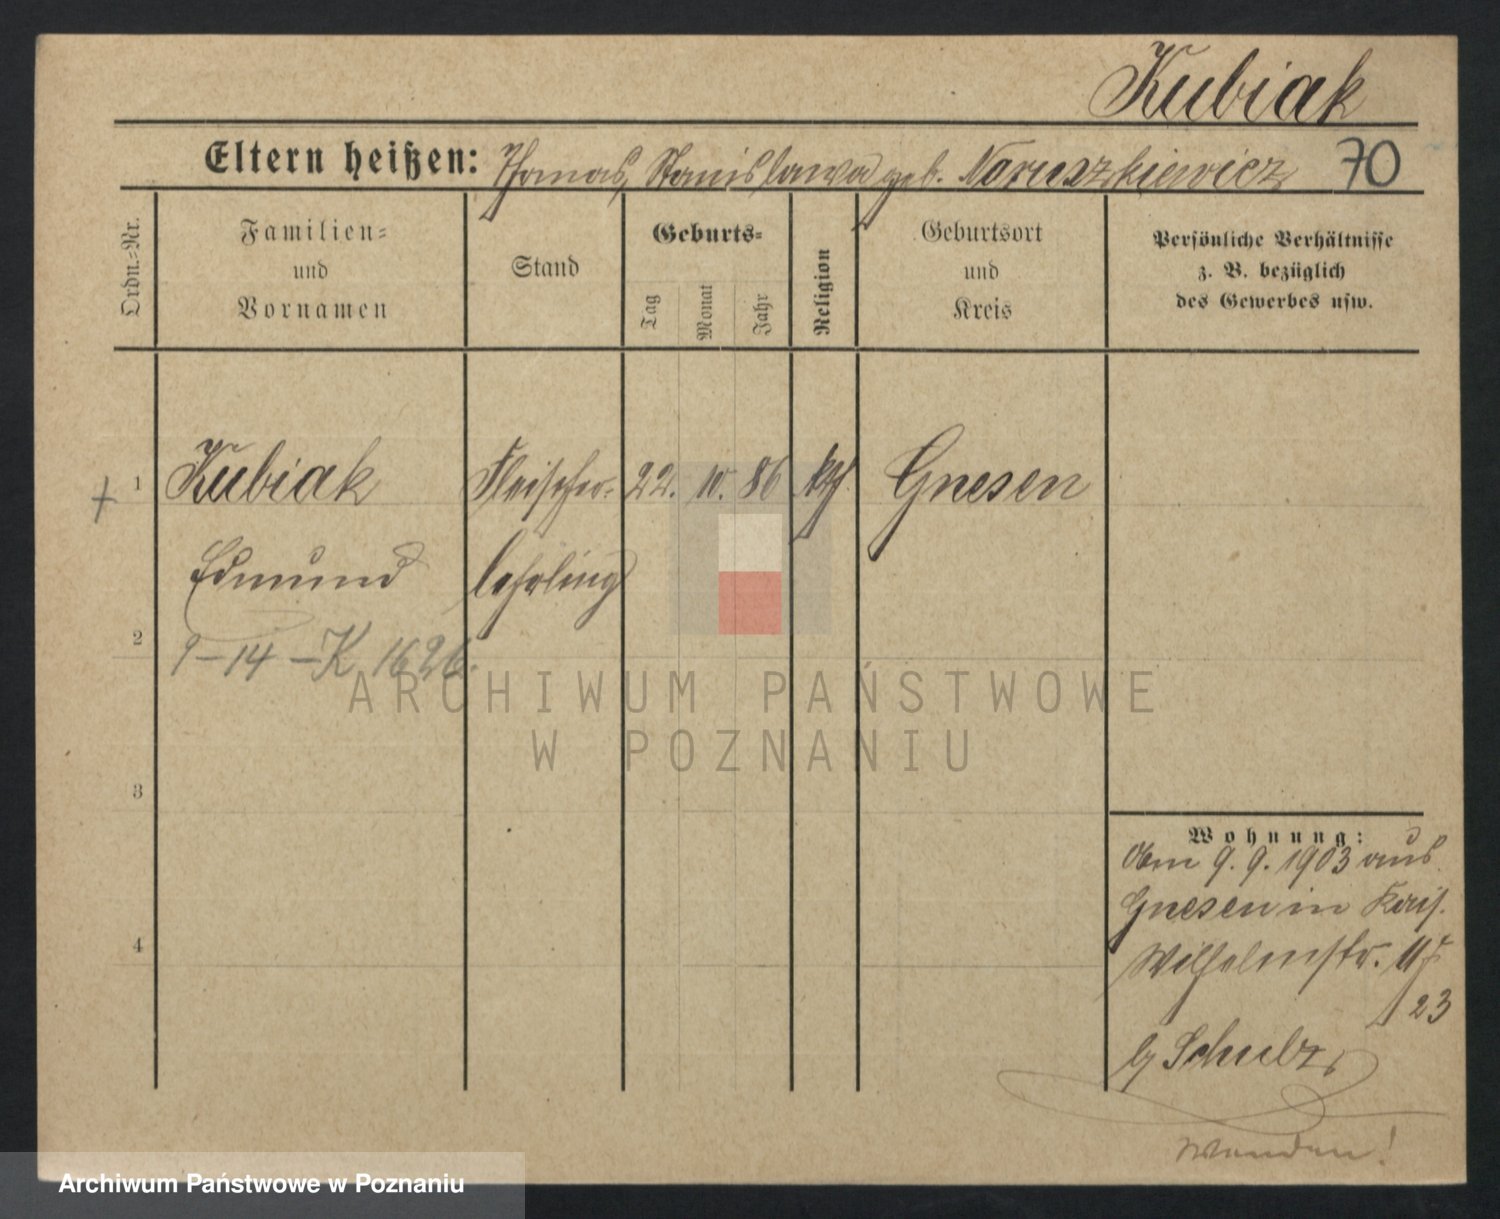 Kubiak
Eltern heißen: Thomas, Stanislawa geb. Noruszkiewicz 70
Ordn.-Nr.
Familien-
und
Vornamen
Stand
Geburts-
Tag
Monat
Jahr
Religion
Geburtsort
und
Kreis
Persönliche Verhältnisse
z. B. bezüglich
des Gewerbes usw.
+ 1 Kubiak Fleischer- 22. 10. 86 kth. Gnesen
Edmund lehrling
2
9-14-K 1626.
3
4
Wohnung:
Vom 9. 9. 1903 aus
Gnesen in
Wilhelmstr.
23
b/ Schulz
Wenden!
ARCHIWUM PAŃSTWOWE
W POZNANIU
Archiwum Państwowe w Poznaniu